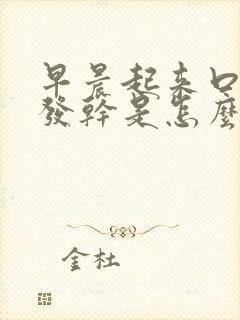 早晨起來口
發幹是怎麼
金杜